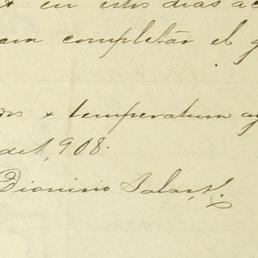 en estos dias ac
completar el g
x temperatura ag
del 1,908.
Dionisio Salas